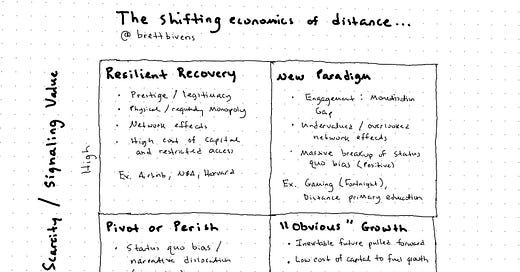 The shifting economics of distance...
@brettbivens
Scarcity / Signaling Value
High
Resilient Recovery
• Prestige / legitimacy
• Physical / regulatory Monopoly
• Network effects
• High cost of capital
and restricted access
Ex. Airbnb, NBA, Harvard
New Paradigm
• Engagement : Monetization
Gap
• Undervalued / overlooked
network effects
• Massive breakup of status
quo bias (Positive)
Ex. Gaming (Fortnight),
Distance primary education
Pivot or Perish
• Status quo bias /
narrative dislocation
"Obvious" Growth
• Inevitable future pulled forward
• Low cost of capital to fuel growth